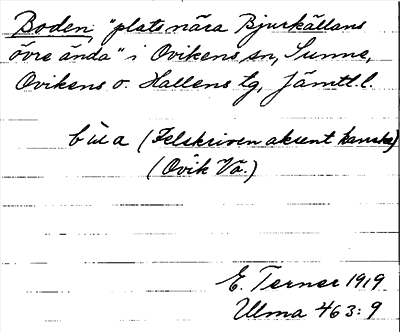 Boden, "plats nära Bjurkällans
övre ända" i Ovikens sn, Sunne,
Ovikens o. Hallens tg, Jämtl. l.
bùa (Felskriven aksent kanske)
(Ovik Vä.)
E. Terner 1919
Ulma 463:9